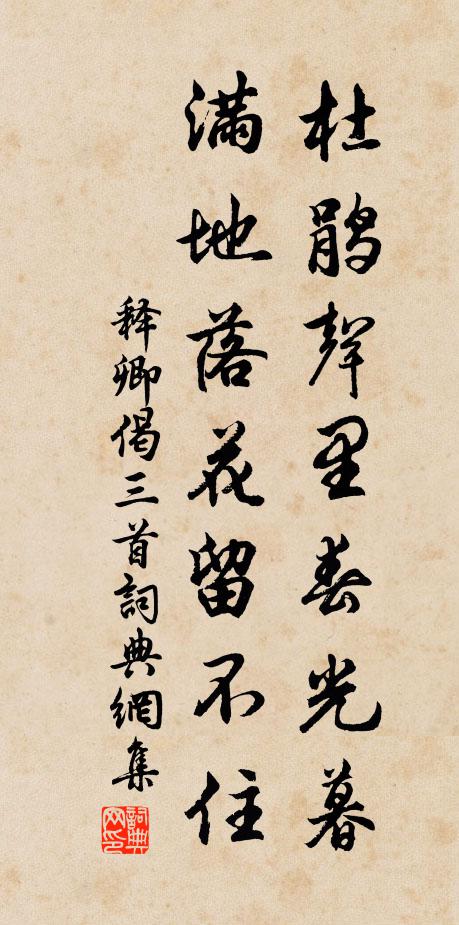 杜鹃聲里春光暮
满地落花留不住
释卿偈三首詞典網集
詞典网印